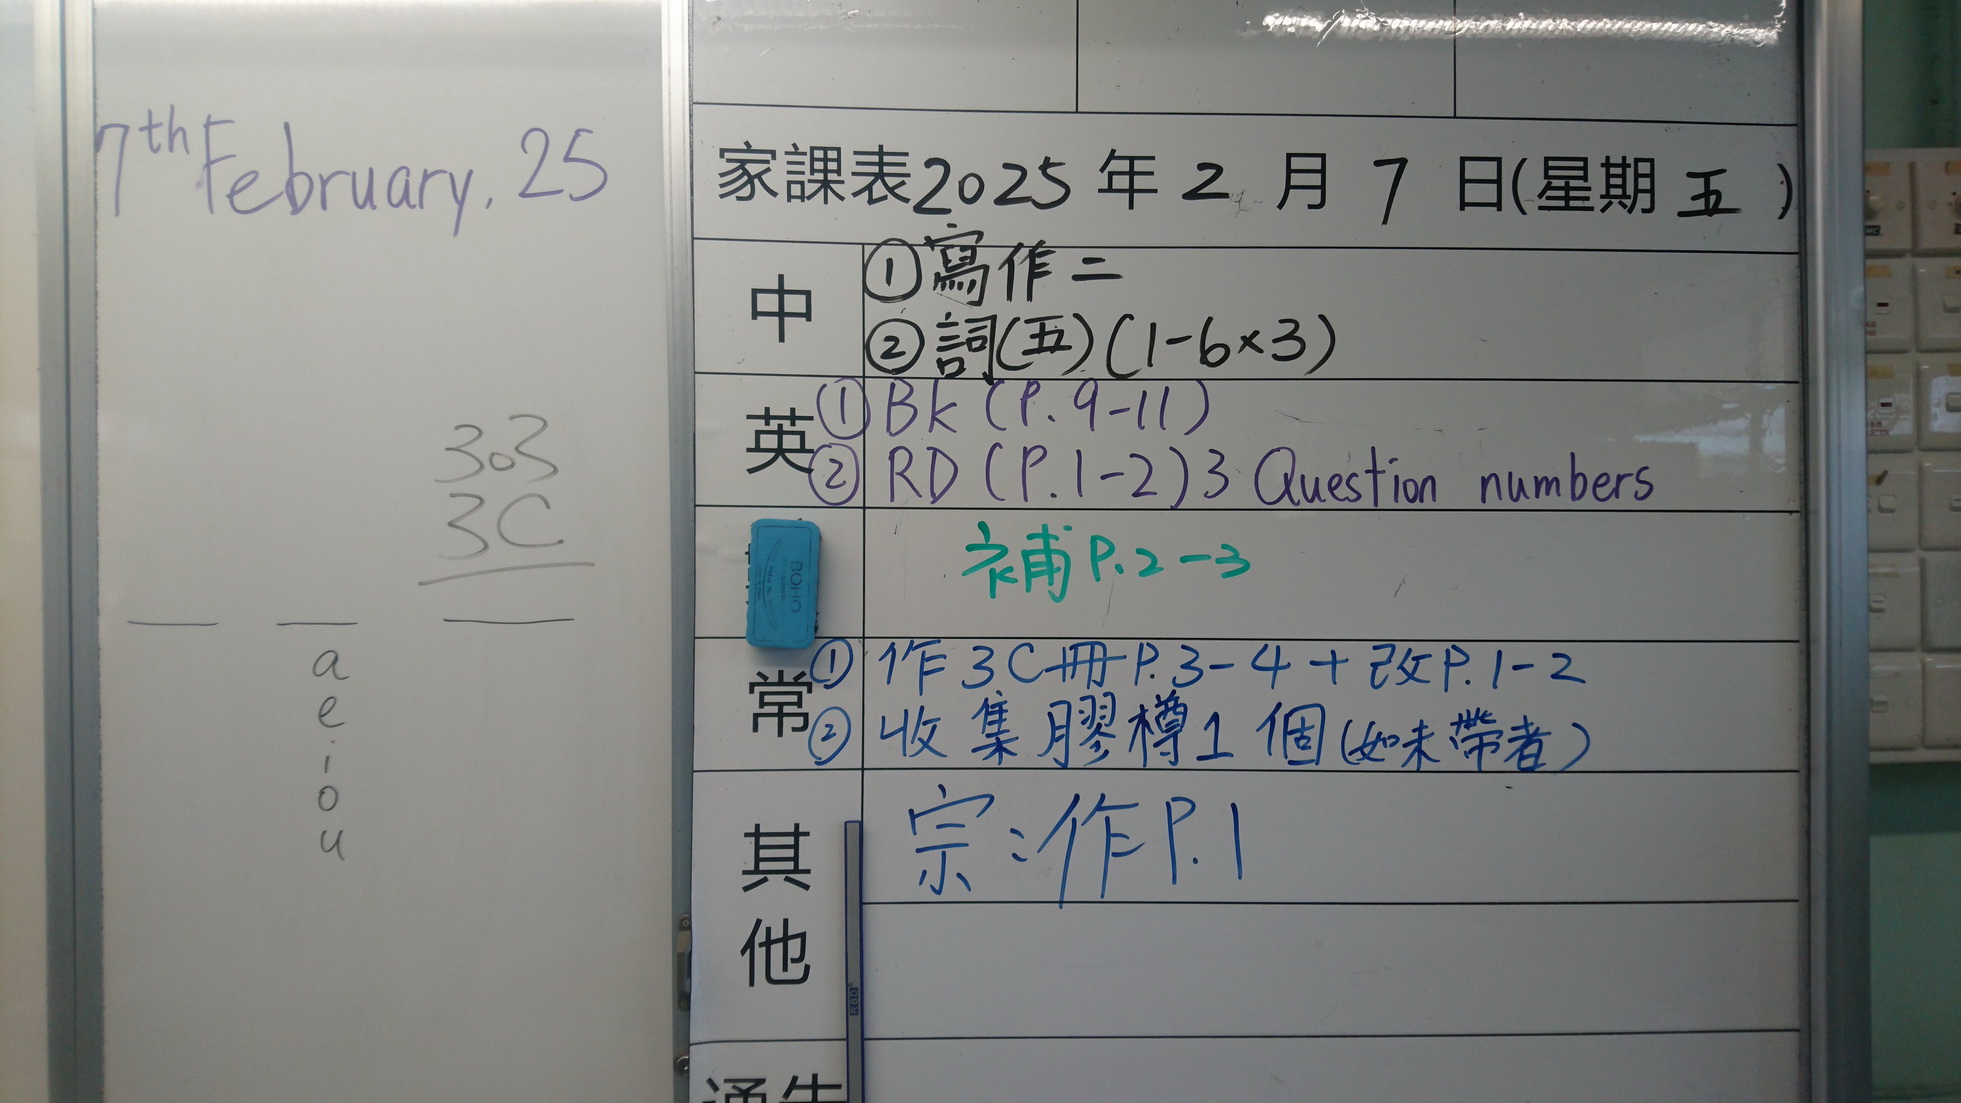 7th February, 25
303
3C
a
e
i
o
u
家課表2025年2月7日(星期五)
中
①寫作二
②詞(五)(1-6×3)
英
①Bk (P.9-11)
②RD (P.1-2) 3 Question numbers
補P.2-3
BOHO
常
①作3C冊P.3-4+改P.1-2
②收集膠樽1個(如未帶者)
其他
宗:作P.1
通告